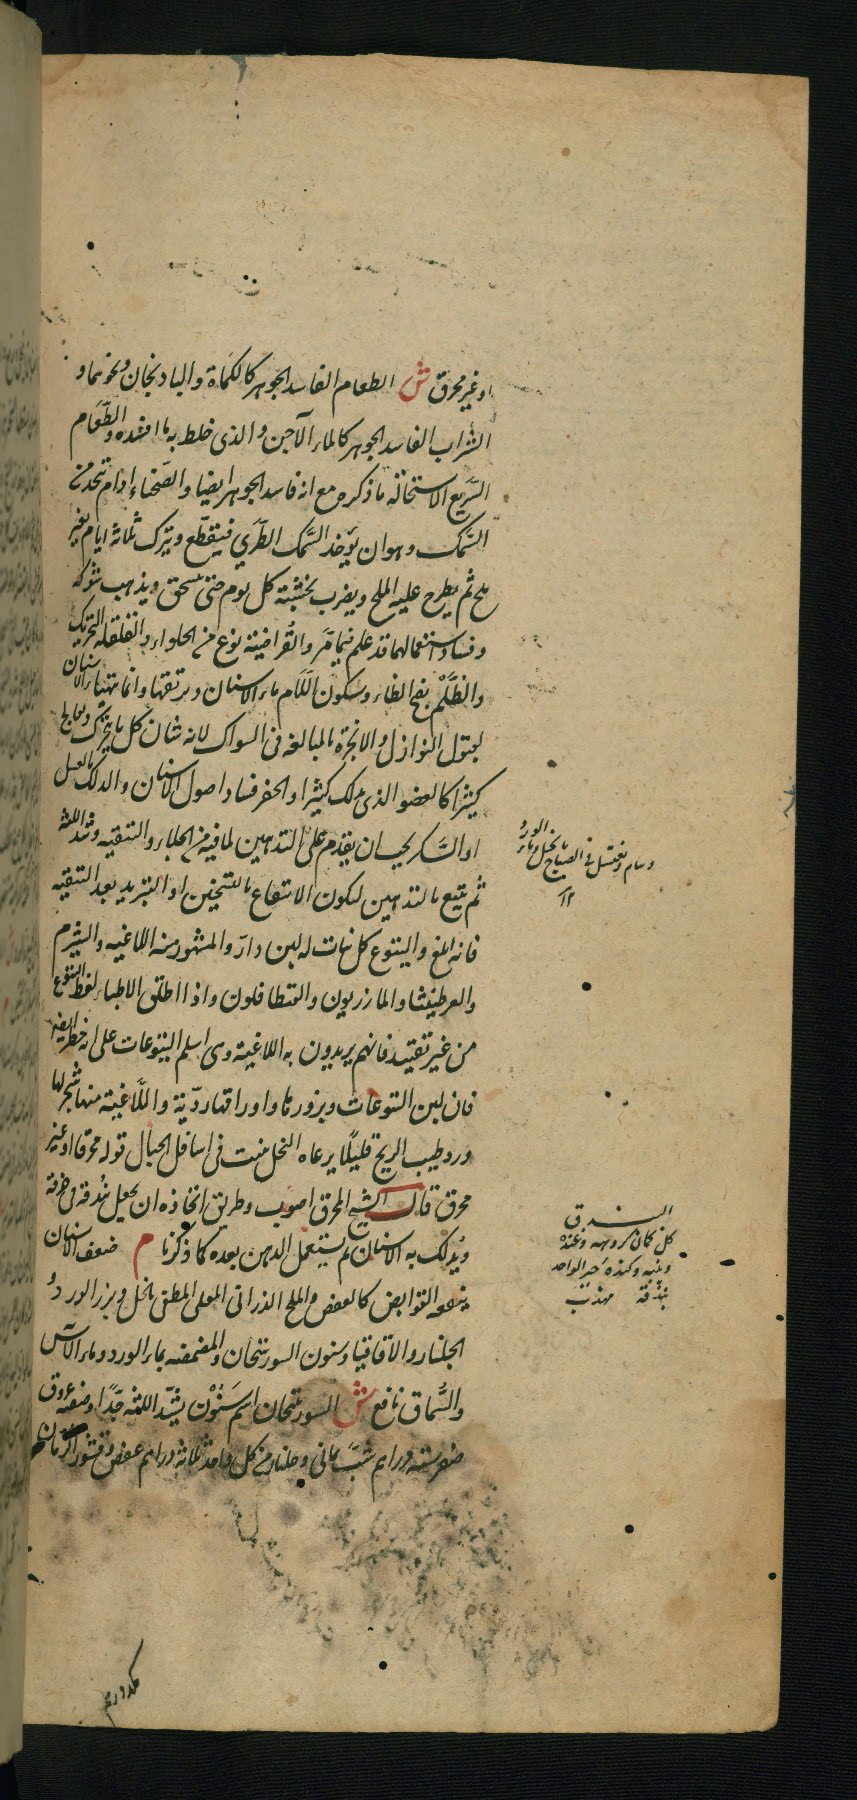 او غير محرق ش الطعام الفاسد الجوهر كالكمأة والباذنجان ونحوهما و
الشراب الفاسد الجوهر كالماء الآجن والذى خلط به ما افسده والطعام
السريع الاستحالة ما ذكره مع انه فاسد الجوهر ايضا والصحناء ادام يتخذ من
السمك وهو ان يؤخذ السمك الطرى فيقطع ويترك ثلاثة ايام بغير
ملح ثم يطرح عليه الملح ويضرب بخشبة كل يوم حتى ينسحق ويذهب شوكه
وفساد استعمالهما قد علم فيما مر والقراضية نوع من الحلواء والقلقلة التحريك
والظلم بفتح الظاء وسكون اللام ماء الاسنان وبريقها وانما تهيأ الاسنان
لقبول النوازل والابخرة بالمبالغة فى السواك لانه شان كل ما يتحرك ويعالج
كثيرا كالعضو الذى يدلك كثيرا والحفر فساد اصول الاسنان والدلك بالعسل
او السكر يجب ان يقدم على التدهين لما فيه من الجلاء والتنقية وشد اللثة
ثم يتبع بالتدهين ليكون الانتفاع بالتسخين او التبريد بعد التنقية
فانه ابلغ واليتوع كل نبات له لبن دارّ والمشهور منه اللاغية والشبرم
والعرطنيثا والمازريون والقنطافلون واذا اطلق الاطباء لفظ اليتوع
من غير تقييد فانهم يريدون به اللاغية وهى اسلم اليتوعات على انه خطر ايضا
فان لبن اليتوعات وبزورها واوراقها رديّة واللاغية منها شجر لها
ورد طيب الريح قليلا يرعاه النحل ينبت فى اسافل الجبال قوله محرقا او غير
محرق قال الشيخ المحرق اصوب وطريق اتخاذه ان يجعل بندقة فى خرقة
ويدلك به الاسنان ثم يستعمل الدهن بعده كما ذكرنا م ضعف الاسنان
ينفعه القوابض كالعفص والملح الذرانى المقلى المطفى بالخل وبزر الورد و
الجلنار والاقاقيا وسنون السورنجان والمضمضه بماء الورد وماء الآس
والسماق نافع ش السورنجان اسم سنون يشد اللثة جدا وصفته عروق
صفر ستة دراهم شب يمانى وجلنار من كل واحد ثلاثة دراهم عفص وقشور الرمان
البندق
بندقة مهذب